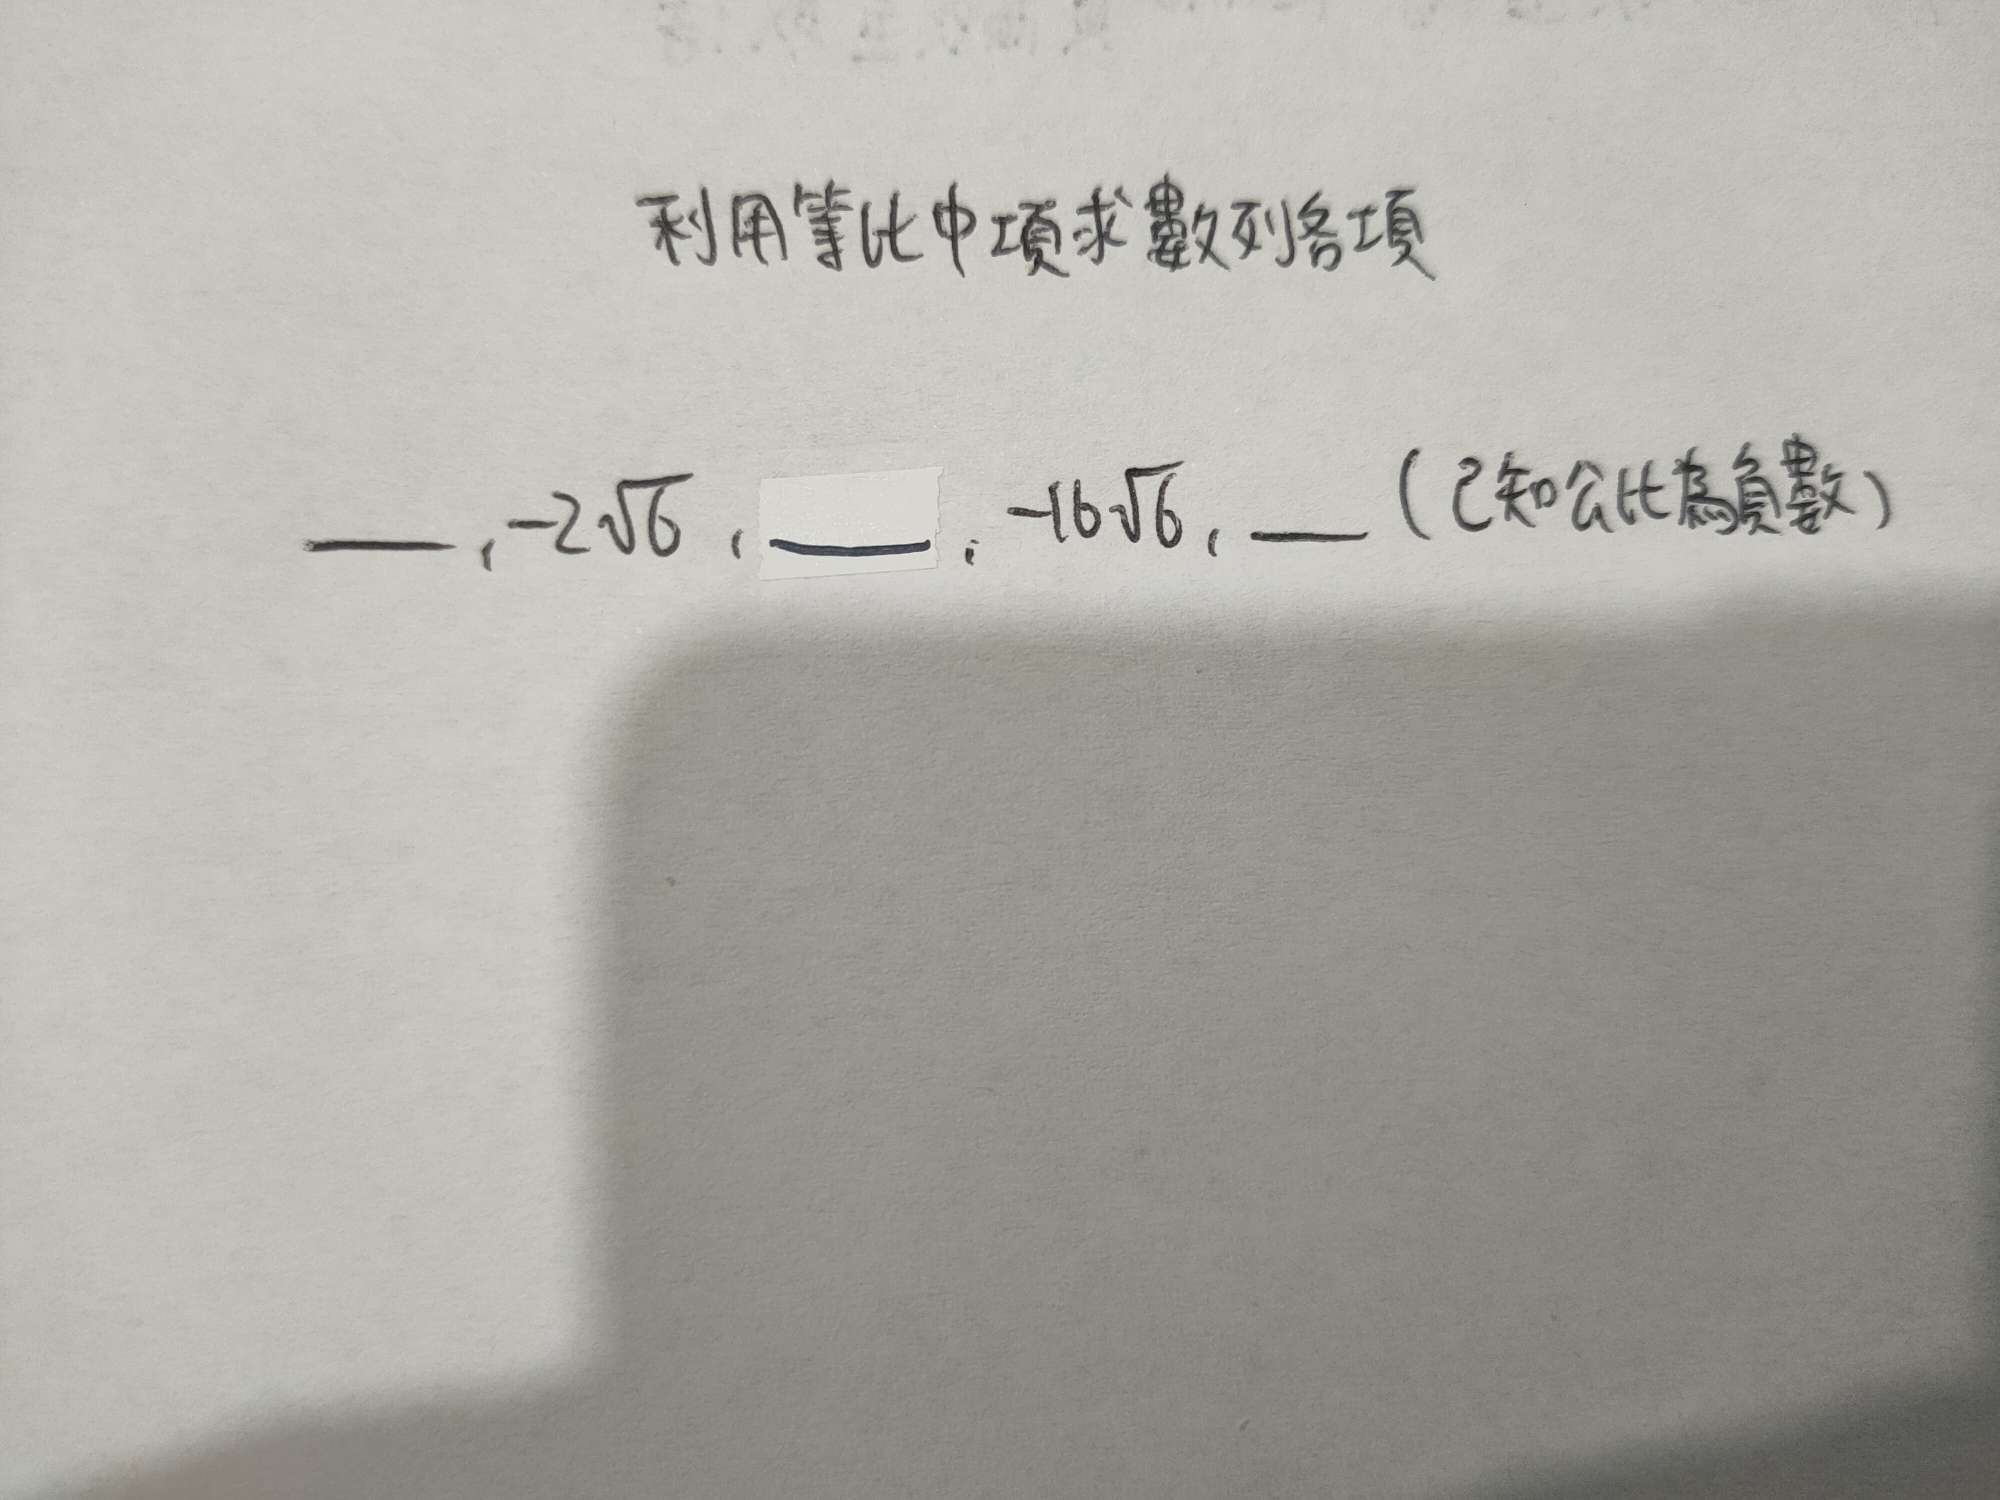 利用等比中項求數列各項
__, -2√6, __, -16√6, __ (已知公比為負數)